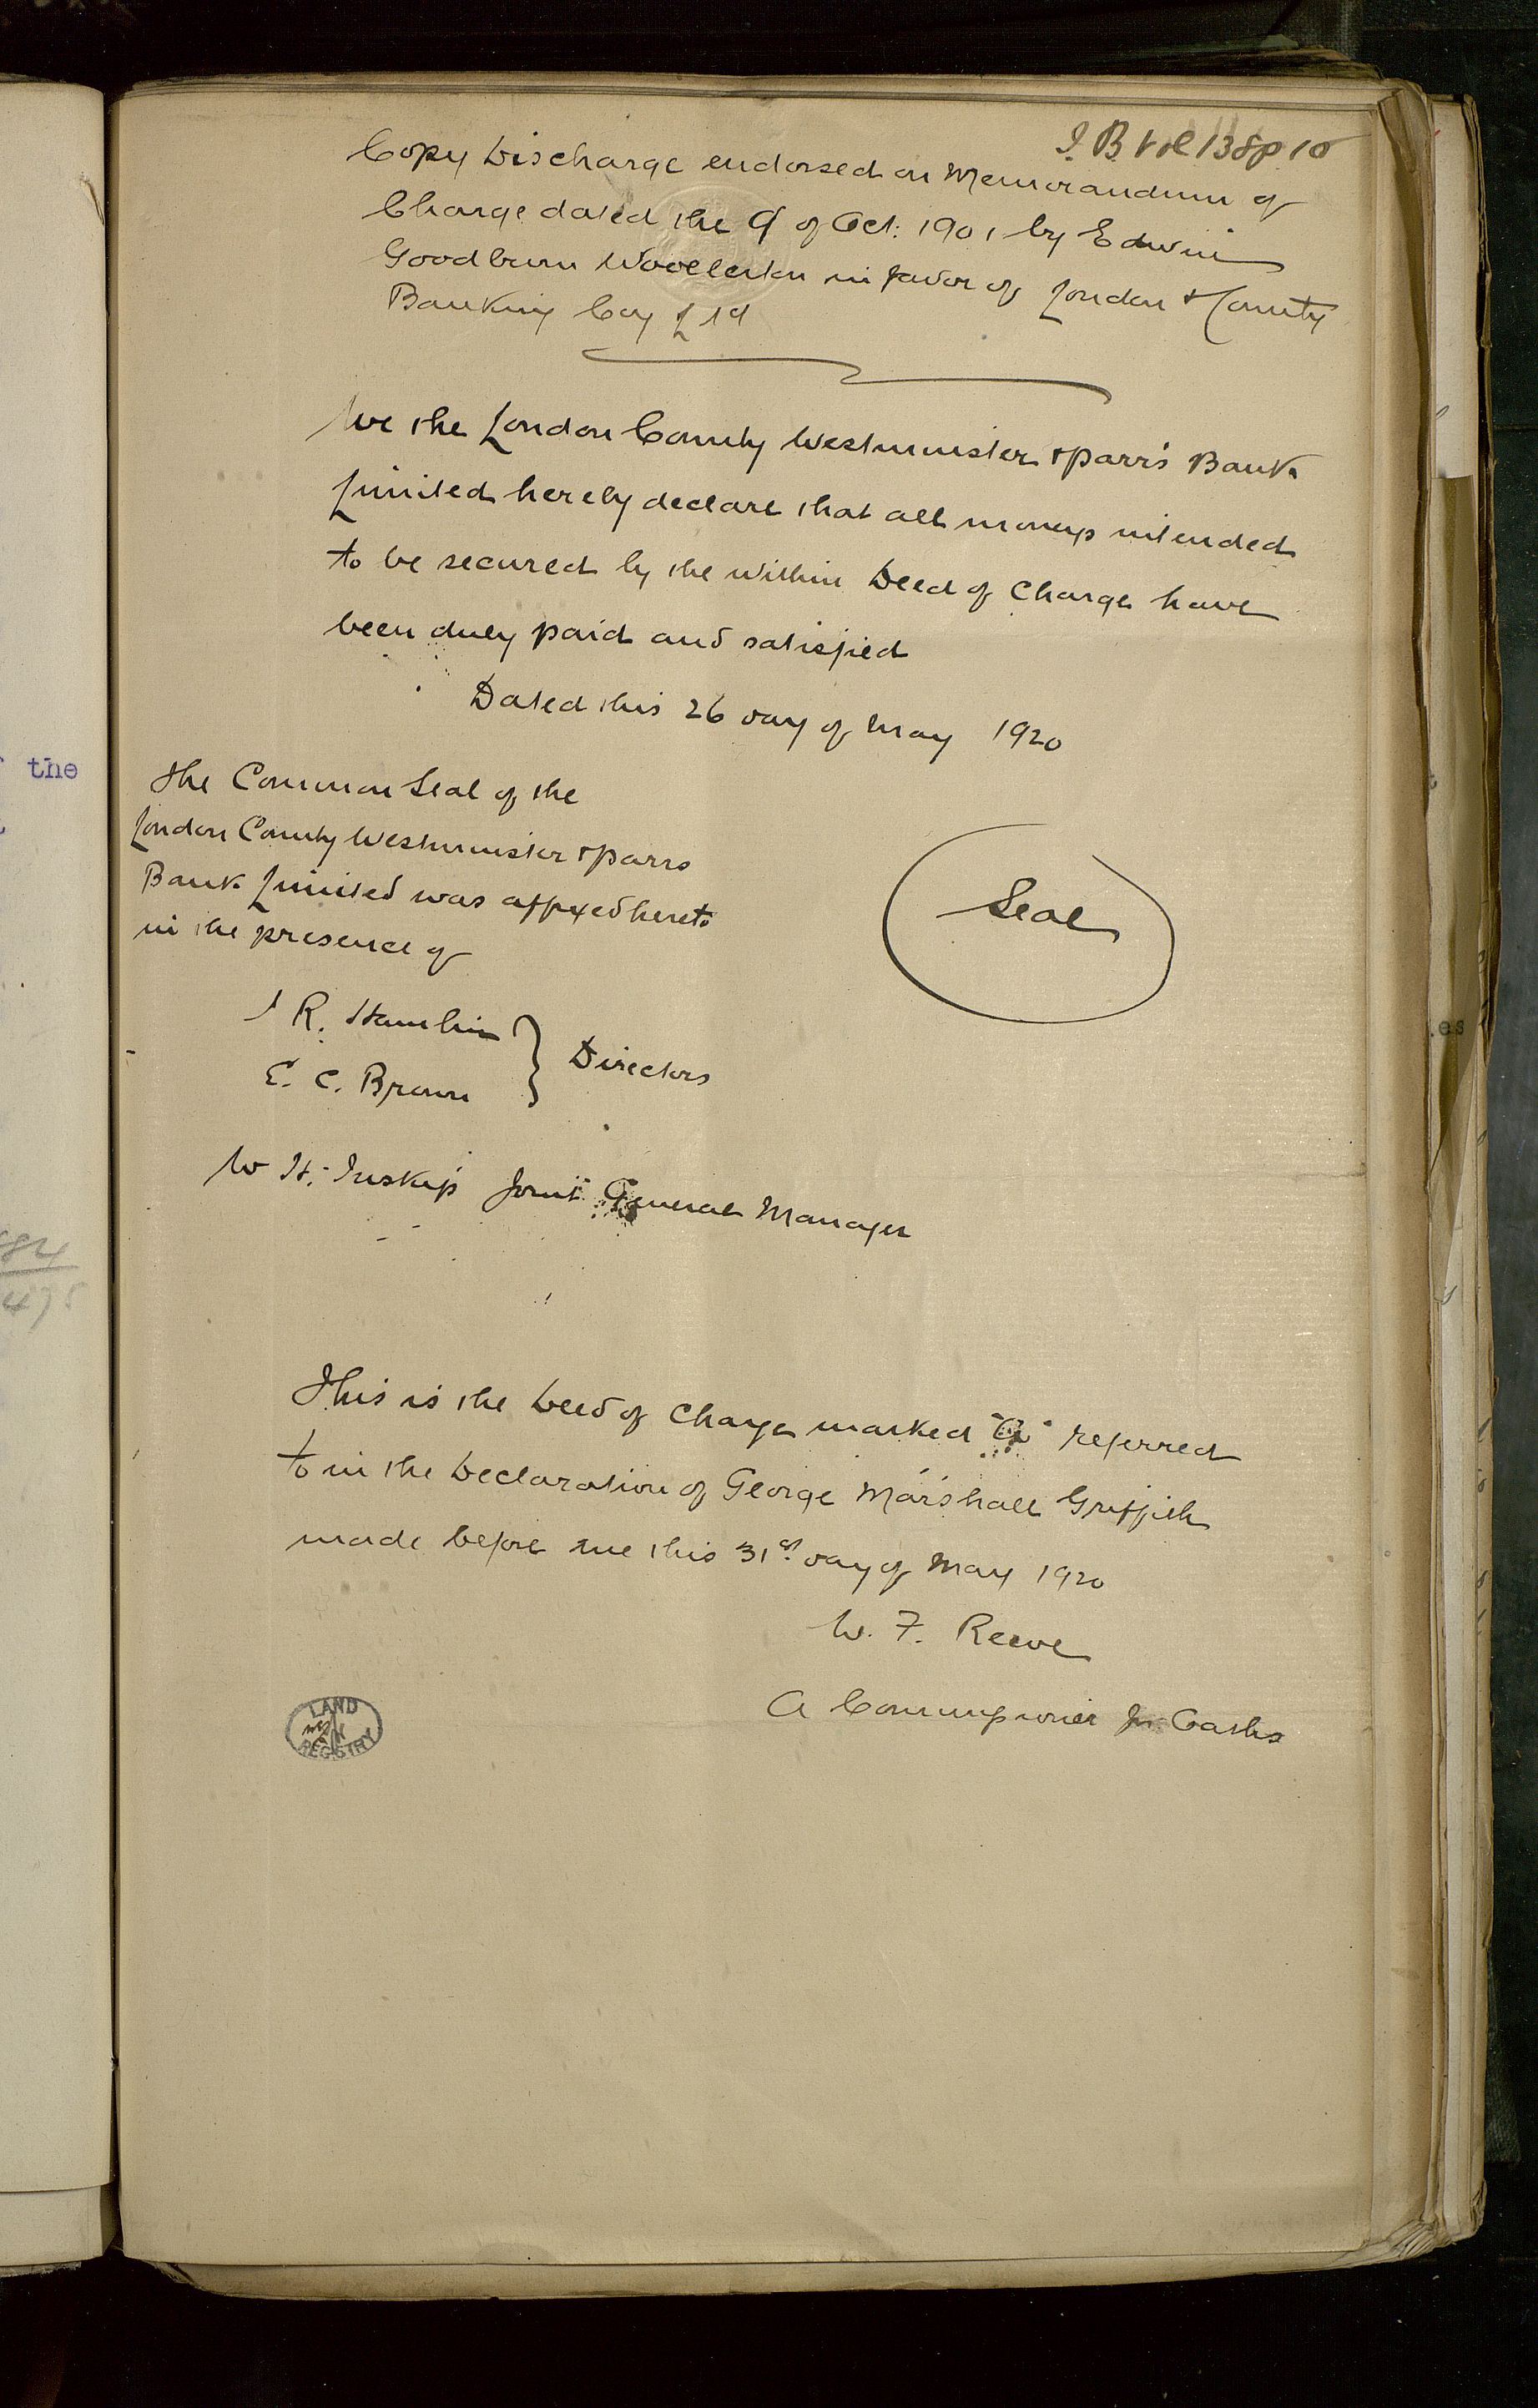 I. B Vol 138 p 10
Copy Discharge endorsed on Memorandum of
Charge dated the 9 of Oct: 1901 by Edwin
Goodburn Woollerton in favor of London & County
Banking Coy Ld
We the London County Westminster & Parr's Bank
Limited hereby declare that all moneys intended
to be secured by the within Deed of Charge have
been duly paid and satisfied
Dated this 26 day of May 1920
The Common Seal of the
London County Westminster & Parrs
Bank Limited was affixed hereto
in the presence of
Seal
R. Hamlin
E. C. Brown
} Directors
W. H. Inskip Joint General Manager
This is the Deed of Charge marked "A" referred
to in the Declaration of George Marshall Griffith
made before me this 31st day of May 1920
W. F. Reeve
A Commissioner for Oaths
LAND
REGISTRY
the
84
475
es